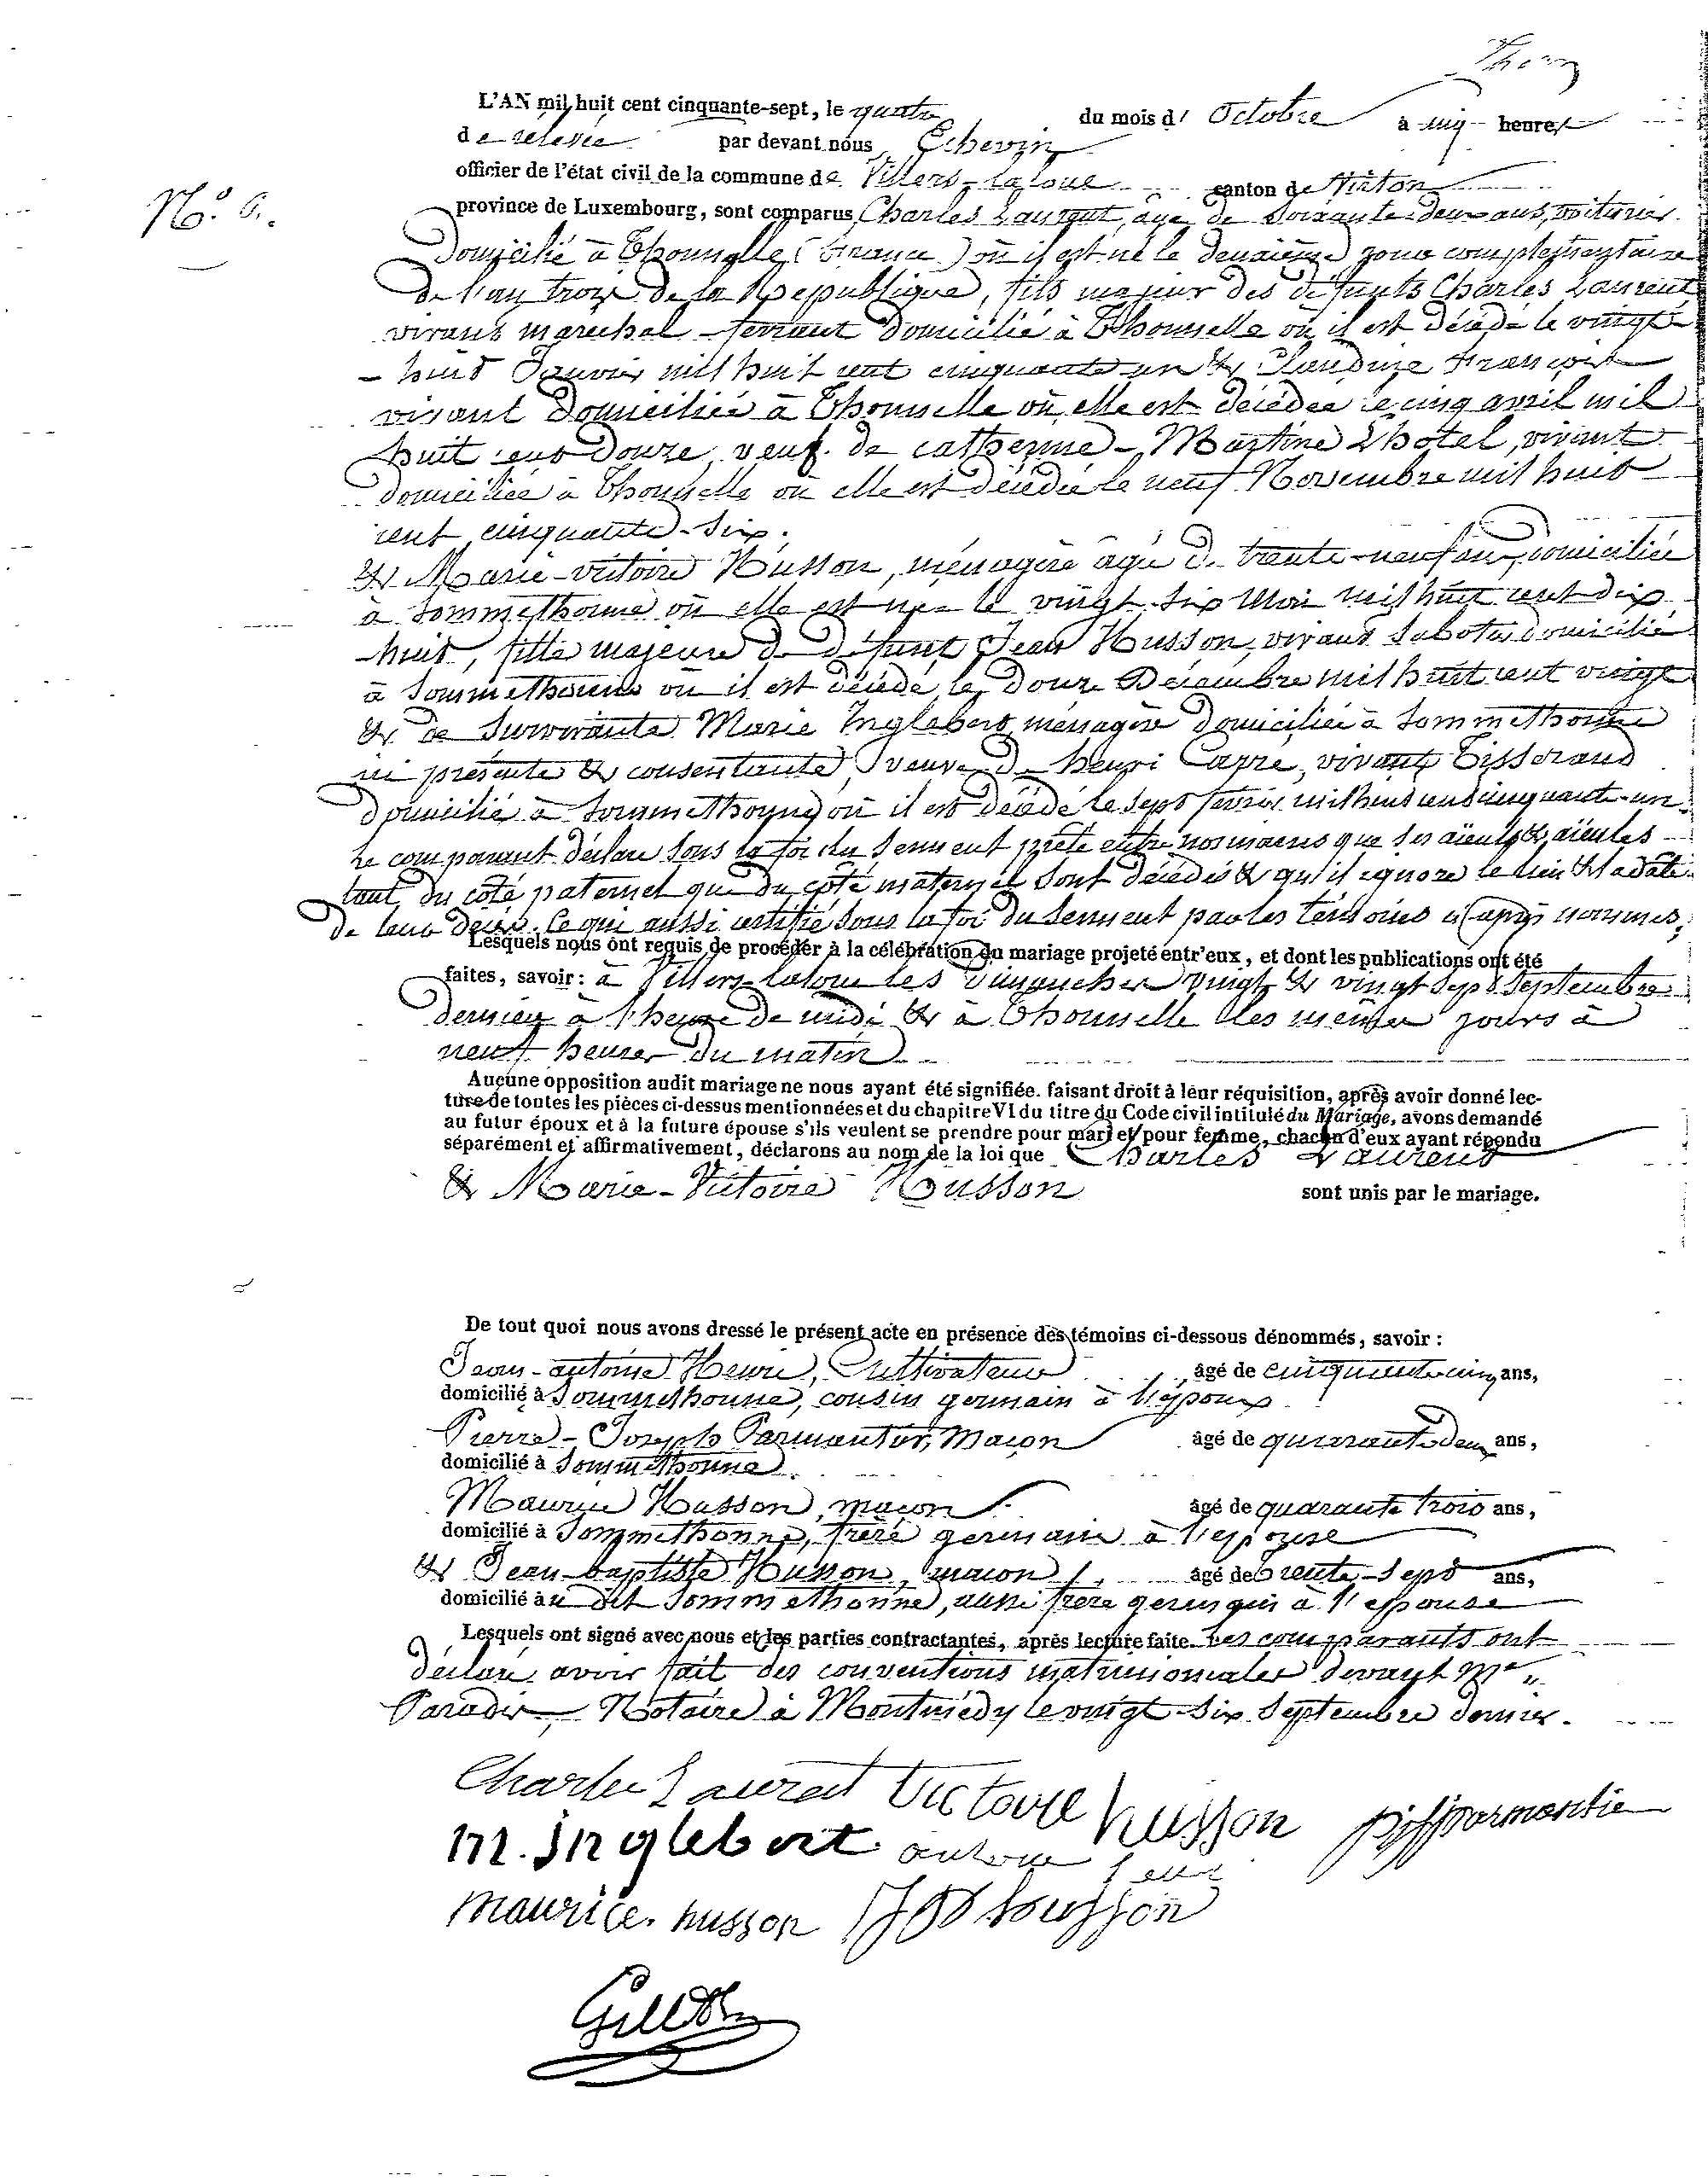 L'AN mil huit cent cinquante-sept, le quatre du mois d' Octobre à cinq heures
de relevée par devant nous Echevin
officier de l'état civil de la commune de Villers-laloue canton de Virton
N.º 6.
province de Luxembourg, sont comparus Charles Laurent, âgé de soixante-deux ans, voiturier
domicilié à Thonnelle (France) où il est né le deuxième jour complémentaire
de l'an trois de la République, fils majeur des défunts Charles Laurent,
vivant marechal-ferrant domicilié à Thonnelle où il est décédé le vingt
-huit Janvier mil huit cent cinquante-un & Claudine François
vivant domiciliée à Thonnelle où elle est décédée le cinq avril mil
huit cent douze, veuf de catherine-Martine Lhotel, vivant
domiciliée à Thonnelle où elle est décédée le neuf Novembre mil huit
cent cinquante-six.
& Marie-victoire Husson, ménagère âgée de trente-neuf ans, domiciliée
à Sommethonne où elle est née le vingt-six Mai mil huit cent dix
-huit, fille majeure de défunt Jean Husson, vivant sabotier domicilié
à Sommethonne où il est décédé le douze Décembre mil huit cent vingt
& de survivante Marie Inglebert, ménagère domiciliée à Sommethonne
ici présente & consentante, veuve de henri Capre, vivant Tisserand
domicilié à Sommethonne où il est décédé le sept février mil huit cent cinquante-un.
Le comparant déclare sous la foi du serment prêté entre nos mains que ses aïeuls & aïeules
tant du côté paternel que du côté maternel sont décédés & qu'il ignore le lieu & la date
de leur décès. Ce qui aussi certifié sous la foi du serment par les témoins ci après nommés.
Lesquels nous ont requis de procéder à la célébration du mariage projeté entr'eux, et dont les publications ont été
faites, savoir: à Villers-laloue les dimanches vingt & vingt sept Septembre
dernier à l'heure de midi & à Thonnelle les mêmes jours à
neuf heures du matin
Aucune opposition audit mariage ne nous ayant été signifiée. faisant droit à leur réquisition, après avoir donné lec-
ture de toutes les pièces ci-dessus mentionnées et du chapitre VI du titre du Code civil intitulé du Mariage, avons demandé
au futur époux et à la future épouse s'ils veulent se prendre pour mari et pour femme, chacun d'eux ayant répondu
séparément et affirmativement, déclarons au nom de la loi que Charles Laurent
& Marie-Victoire Husson sont unis par le mariage.
De tout quoi nous avons dressé le présent acte en présence des témoins ci-dessous dénommés, savoir :
Jean-antoine Henri, Cultivateur âgé de cinquante cinq ans,
domicilié à Sommethonne, cousin germain à l'époux
Pierre-Joseph Parmentier, Maçon âgé de quarante deux ans,
domicilié à Sommethonne
Maurice Husson, maçon âgé de quarante trois ans,
domicilié à Sommethonne, frère germain à l'epouse
& Jean-baptiste Husson, maçon âgé de trente-sept ans,
domicilié au dit Sommethonne, aussi frère germain à l'epouse
Lesquels ont signé avec nous et les parties contractantes, après lecture faite. Les comparants ont
déclaré avoir fait des conventions matrimoniales devant Me
Paradis, Notaire à Montmédy le vingt-six Septembre dernier.
Charles Laurent Victoire husson pjparmentie
m. inglebert antoine henri
maurice husson JB husson